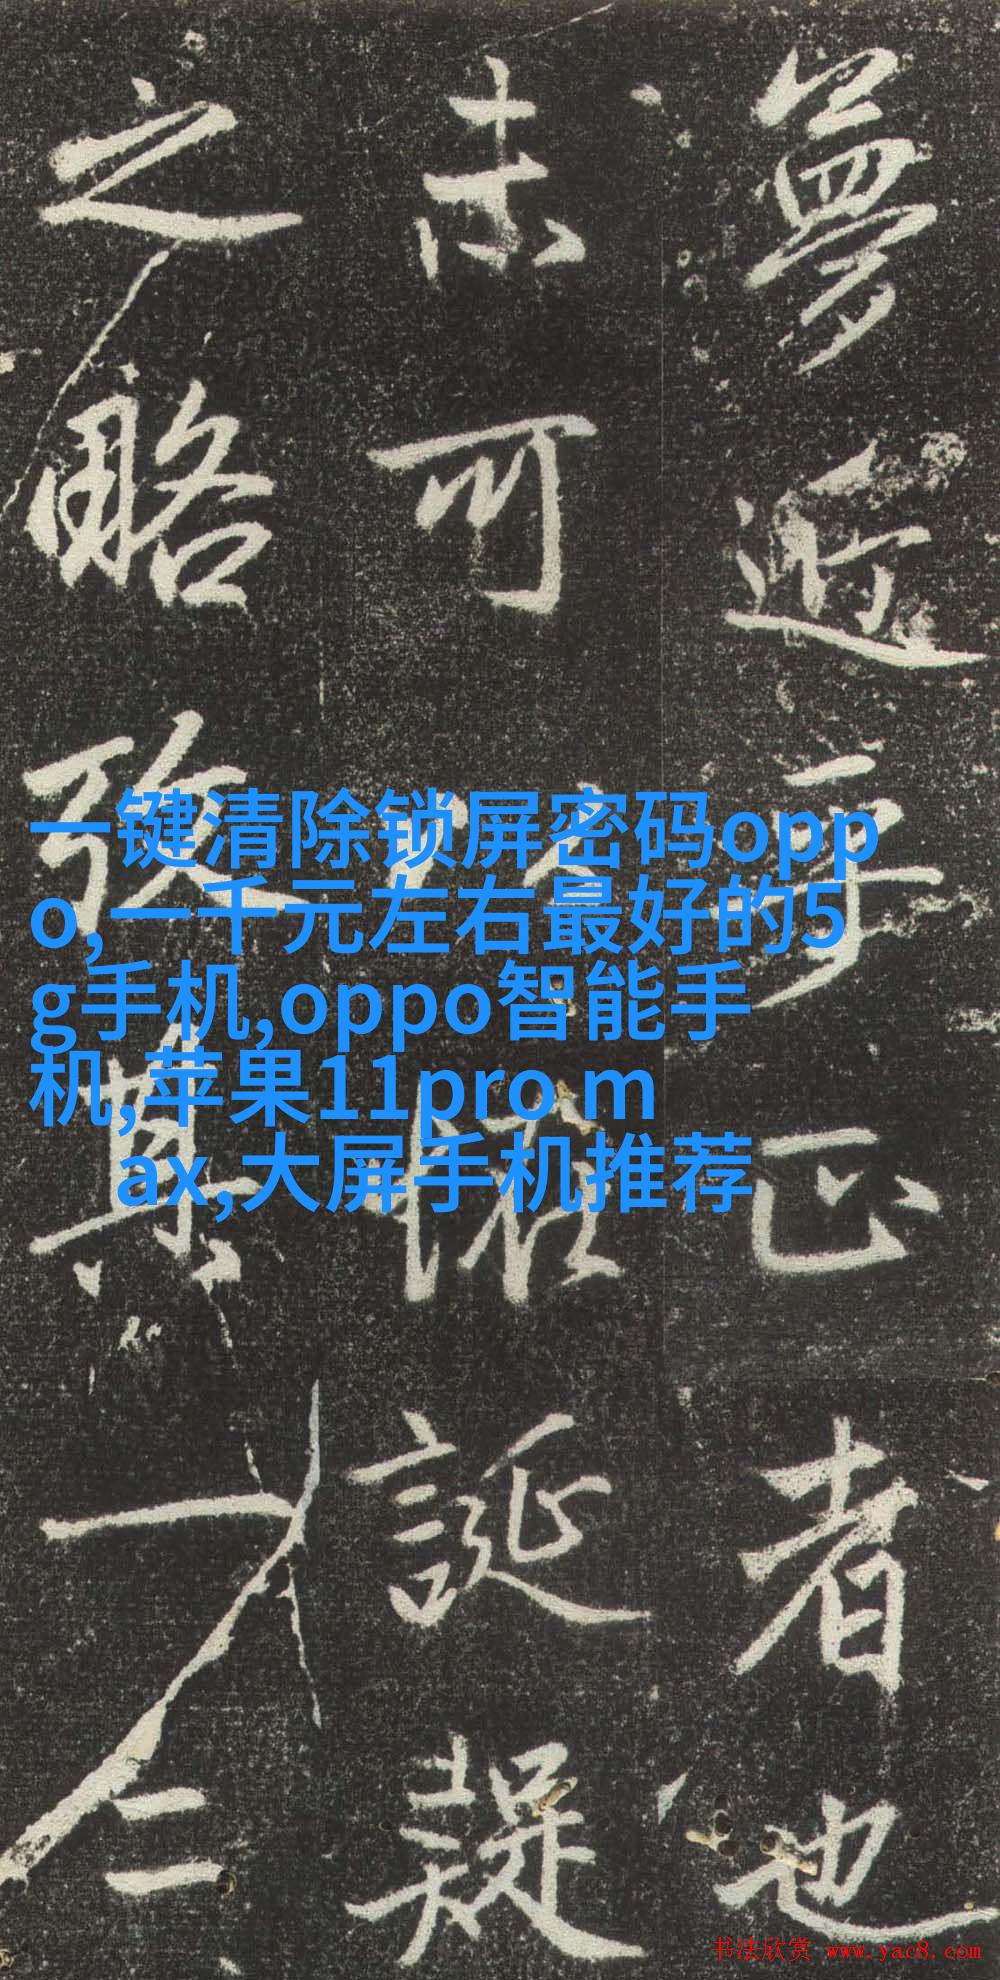 夢近乎正者也
未可
誕疑
之略改其一二
一键清除锁屏密码opp
o,一千元左右最好的5
g手机,oppo智能手
机,苹果11pro m
ax,大屏手机推荐
书法欣赏 www.yac8.com